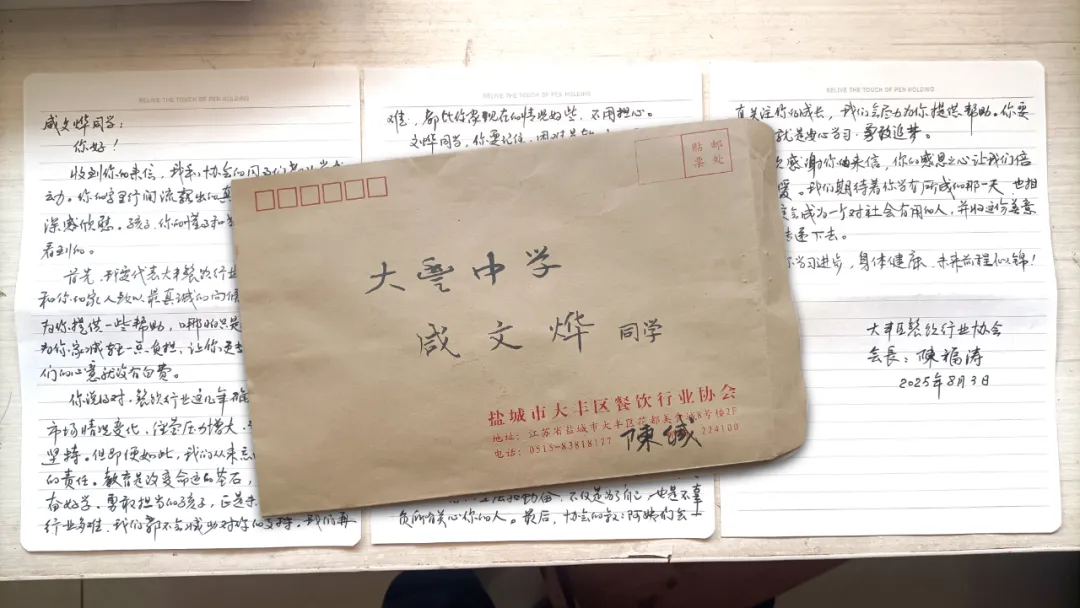 RELIVE THE TOUCH OF PEN HOLDING
咸文烨同学：
你好！
收到你的来信，我和协会的同
动。你的字里行间流露出的真
深感欣慰。孩子，你的懂事和
看到的。
首先，我要代表大丰餐饮行业
和你的家人致以最真诚的问候
为你提供一些帮助，哪怕只是
为你家减轻一点负担，让你更
们的心意就没有白费。
你说的对，餐饮行业这几年确
市场情况变化、经营压力增大、
坚持。但即便如此，我们从未忘
的责任。教育是改变命运的基石，
奋好学、勇敢担当的孩子，正是未
行业多难，我们都不会减少对你的支持。我们再
RELIVE THE TOUCH OF PEN HOLDING
难，都比你家现在的情况好些，不用担心。
文烨同学，你要记住，困难是
不仅是为了自己，也是不辜
负所有关心你的人。最后，协会的叔叔阿姨们会一
RELIVE THE TOUCH OF PEN HOLDING
直关注你的成长，我们会尽力为你提供帮助。你要
就是安心学习、勇敢追梦。
次感谢你的来信，你的感恩之心让我们倍
暖。我们期待着你学有所成的那一天，也相
会成为一个对社会有用的人，并将这份善意
传递下去。
学习进步，身体健康，未来前程似锦！
大丰区餐饮行业协会
会长：陳福涛
2025年8月3日
贴邮
票处
大豐中学
咸文烨 同学
盐城市大丰区餐饮行业协会
地址：江苏省盐城市大丰区花都美食城8号楼2F
电话：0515-83818177 陳缄 224100